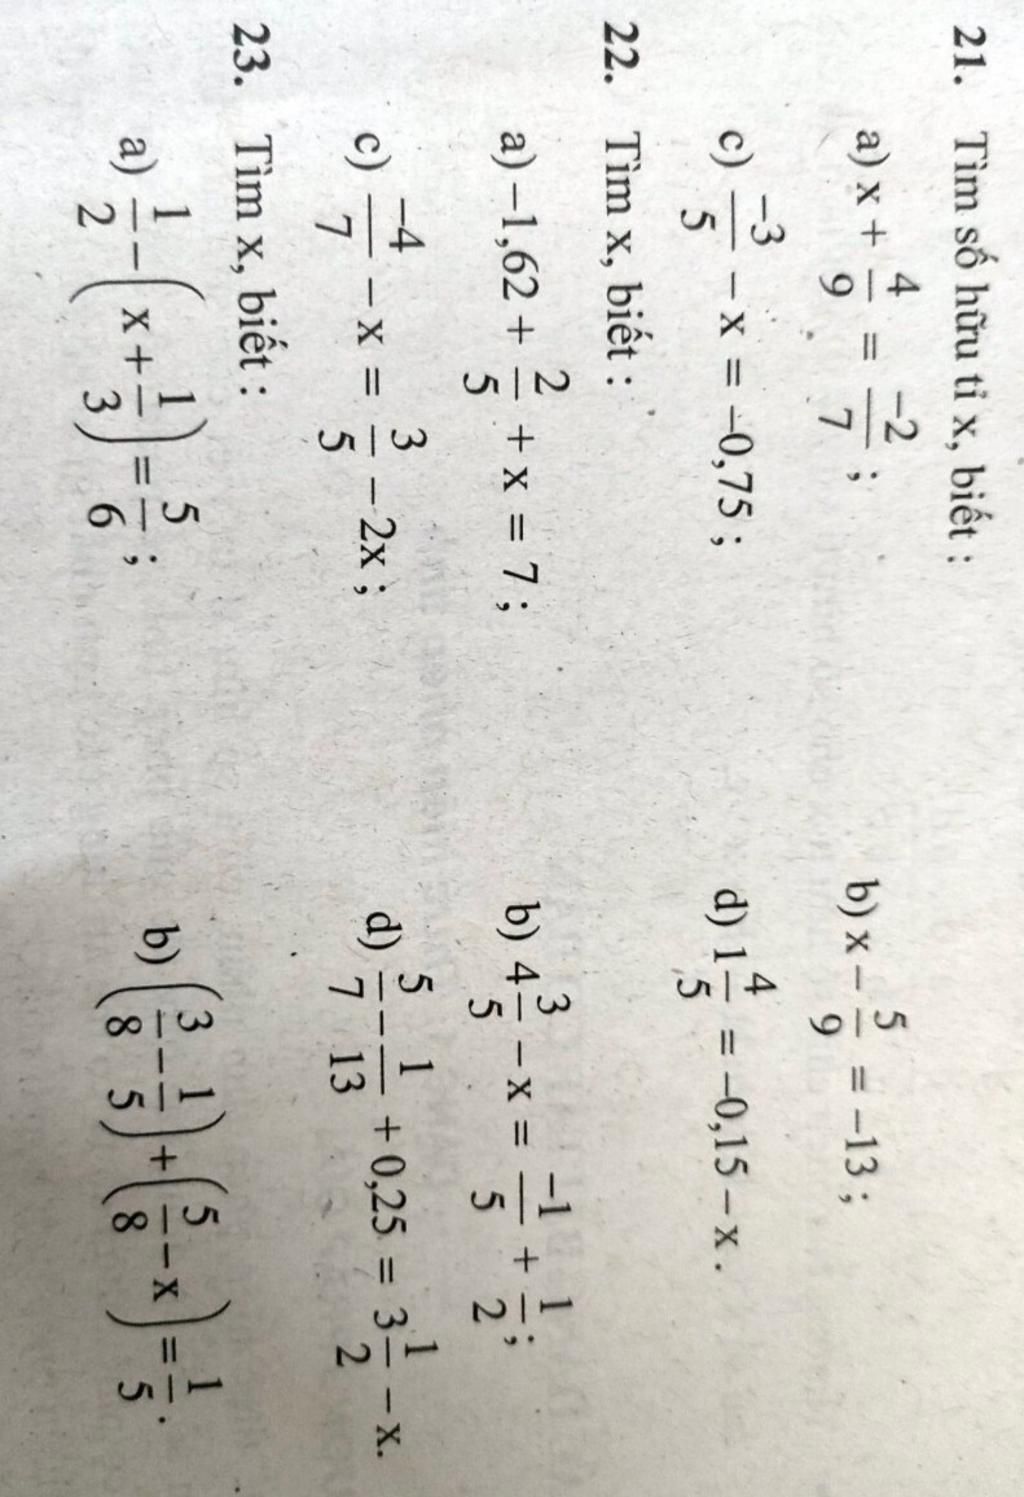 21. Tìm số hữu tỉ x, biết :
a) x + 4/9 = -2/7 ; b) x - 5/9 = -13 ;
c) -3/5 - x = -0,75 ; d) 1 4/5 = -0,15 - x .
22. Tìm x, biết :
a) -1,62 + 2/5 + x = 7 ; b) 4 3/5 - x = -1/5 + 1/2 ;
c) -4/7 - x = 3/5 - 2x ; d) 5/7 - 1/13 + 0,25 = 3 1/2 - x.
23. Tìm x, biết :
a) 1/2 - (x + 1/3) = 5/6 ; b) (3/8 - 1/5) + (5/8 - x) = 1/5 .